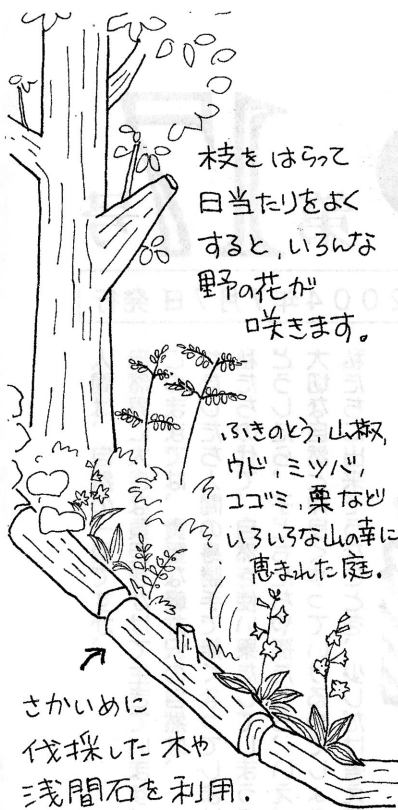 枝をはらって
日当たりをよく
すると、いろんな
野の花が
咲きます。
ふきのとう、山椒、
ウド、ミツバ、
コゴミ、栗など
いろいろな山の幸に
恵まれた庭.
さかいめに
伐採した木や
浅間石を利用.